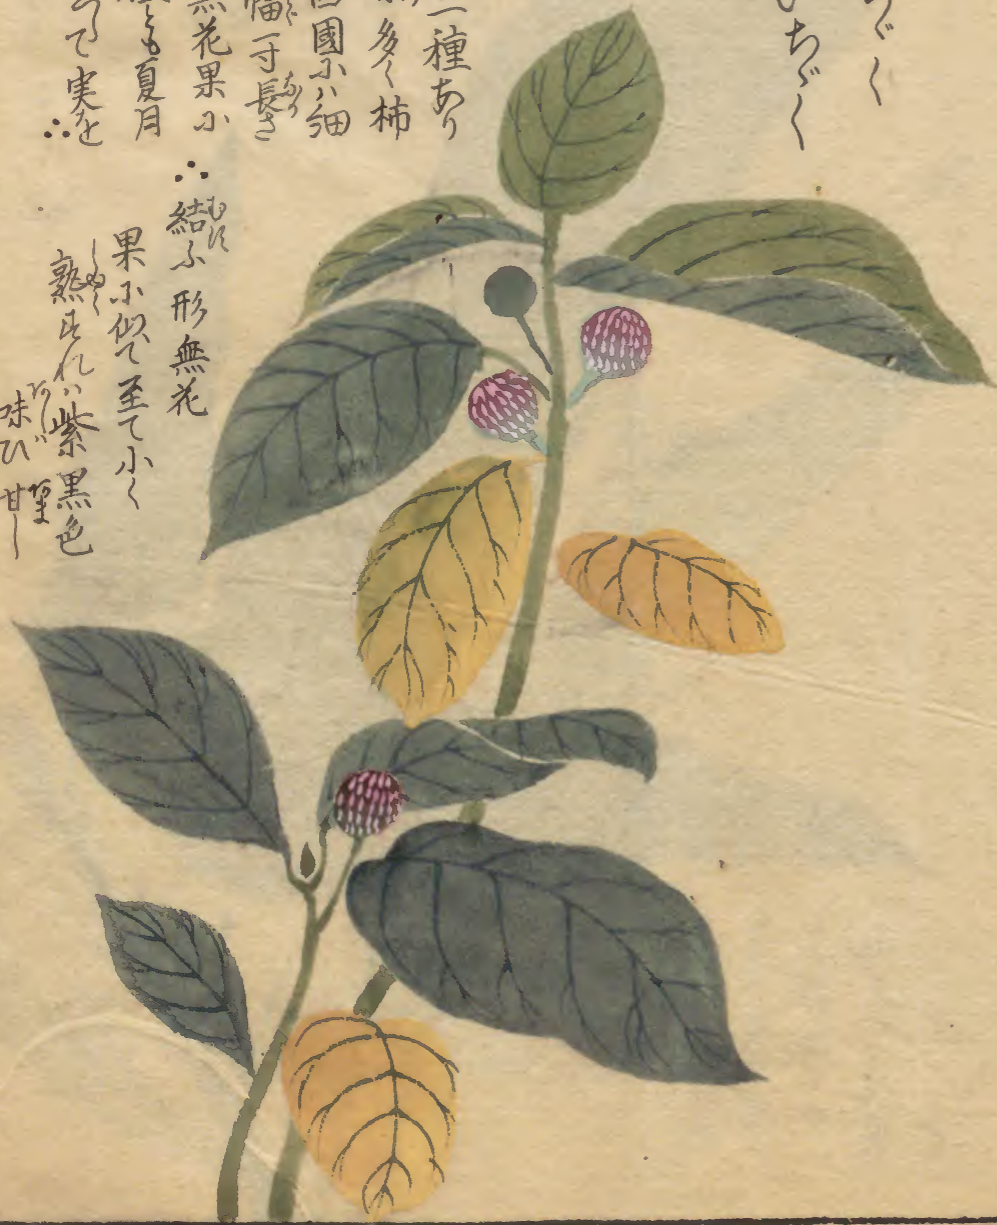 ちゞく
一種あり
多く柿
國ニハ細
幅一寸長さ
無花果ニ
とも夏月
て実を
∴
∴結ふ形無花
果ニ似て至て小く
熟すれハ紫黒色
味ひ甘し